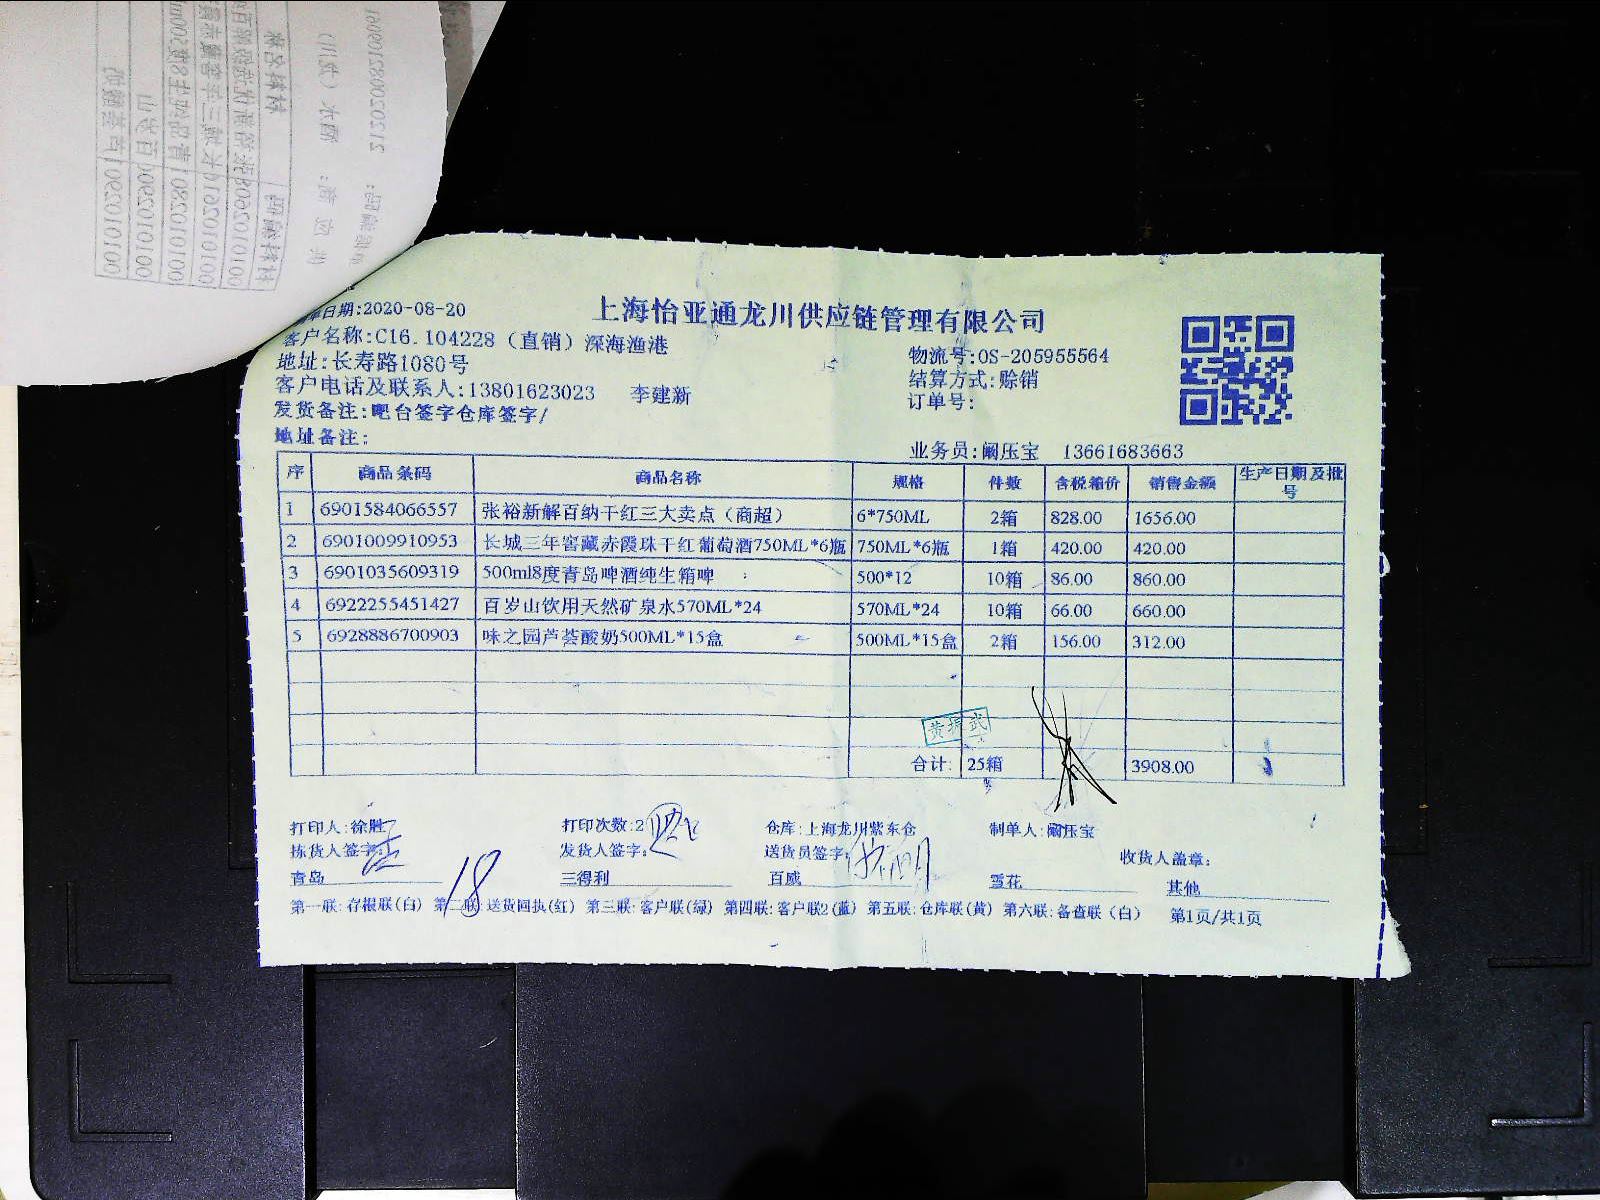 上海怡亚通龙川供应链管理有限公司
日期:2020-08-20
客户名称:C16.104228（直销）深海渔港
物流号:OS-205955564
地址:长寿路1080号
结算方式:赊销
客户电话及联系人:13801623023 李建新
订单号:
发货备注:吧台签字仓库签字/
地址备注:
业务员:阚压宝 13661683663
序 商品条码 商品名称 规格 件数 含税箱价 销售金额 生产日期及批号
1 6901584066557 张裕新解百纳干红三大卖点（商超） 6*750ML 2箱 828.00 1656.00
2 6901009910953 长城三年窖藏赤霞珠干红葡萄酒750ML*6瓶 750ML*6瓶 1箱 420.00 420.00
3 6901035609319 500ml8度青岛啤酒纯生箱啤 500*12 10箱 86.00 860.00
4 6922255451427 百岁山饮用天然矿泉水570ML*24 570ML*24 10箱 66.00 660.00
5 6928886700903 味之园芦荟酸奶500ML*15盒 500ML*15盒 2箱 156.00 312.00
黄振武
合计: 25箱 3908.00
打印人:徐胜 打印次数:2 仓库:上海龙川紫东仓 制单人:阚压宝
拣货人签字: 发货人签字: 送货员签字: 收货人盖章:
18
青岛 三得利 百威 雪花 其他
第一联:存根联(白) 第二联:送货回执(红) 第三联:客户联(绿) 第四联:客户联2(蓝) 第五联:仓库联(黄) 第六联:备查联（白） 第1页/共1页